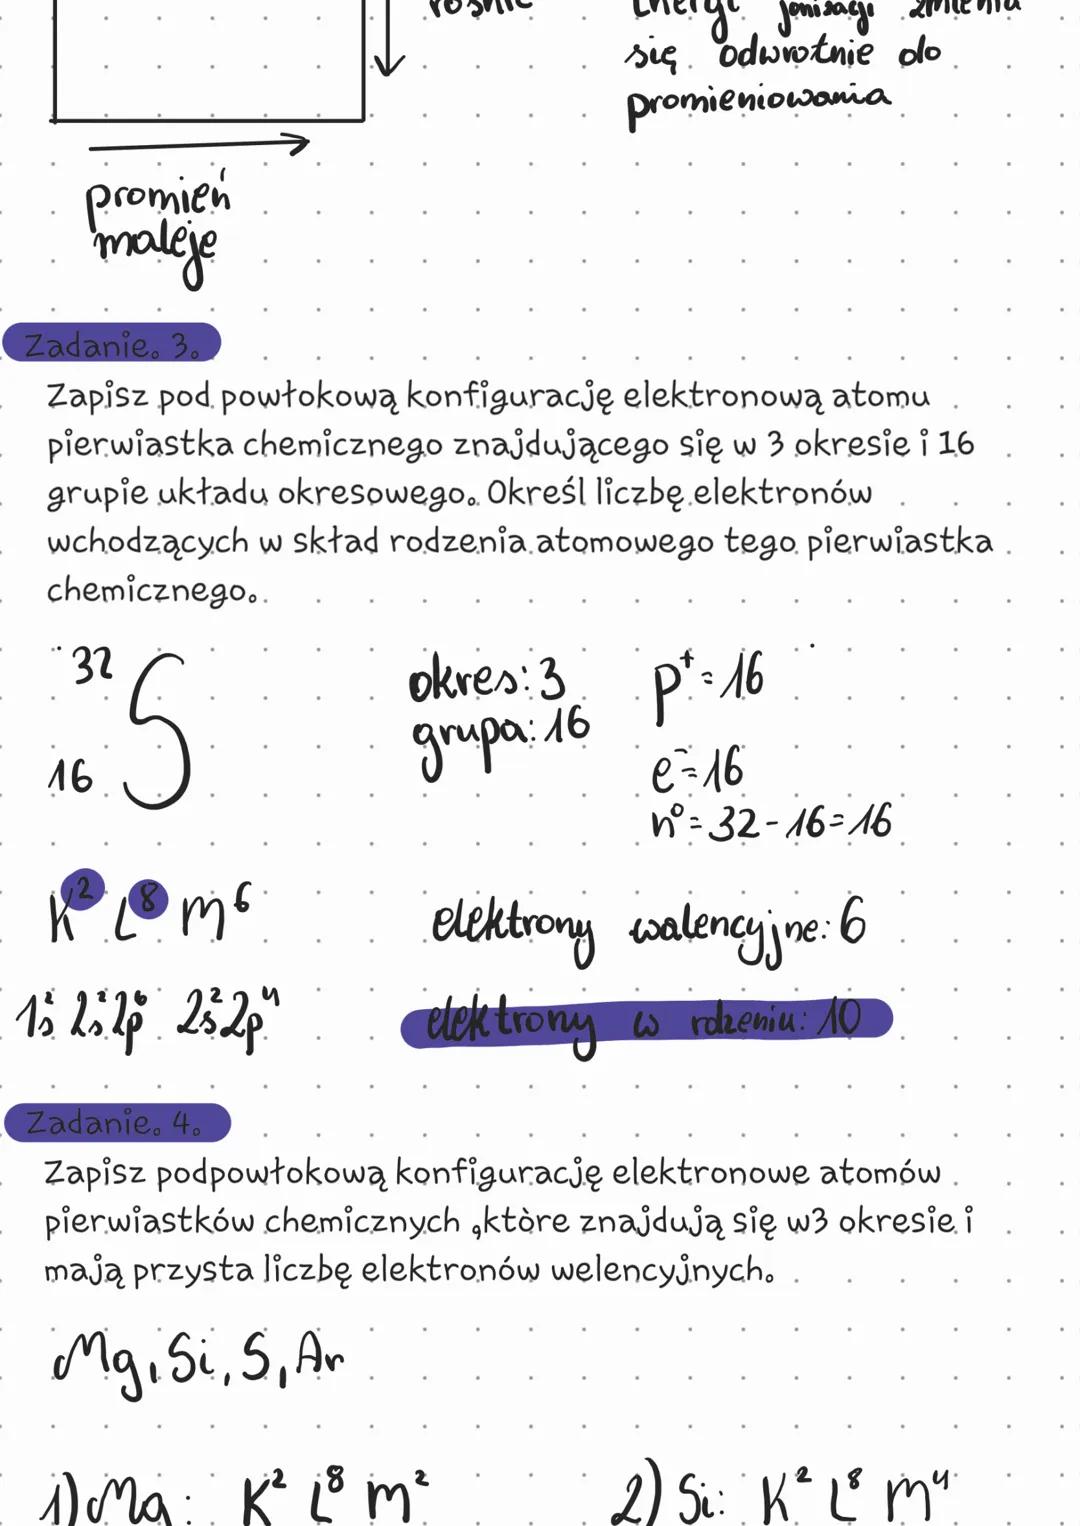 rośnie
Energi jonizacji zmienia
się odwrotnie do
promieniowania
promień
maleje
Zadanie. 3.
Zapisz pod powłokową konfigurację elektronową atomu
pierwiastka chemicznego znajdującego się w 3 okresie i 16
grupie układu okresowego. Określ liczbę elektronów
wchodzących w skład rodzenia atomowego tego pierwiastka
chemicznego.
32
16 S
okres: 3
grupa: 16
p⁺=16
e⁻=16
n⁰=32-16=16
K² L⁸ M⁶
elektrony walencyjne: 6
1s² 2s²2p⁶ 2s²2p⁴
elektrony w rdzeniu: 10
Zadanie. 4.
Zapisz podpowłokową konfigurację elektronowe atomów
pierwiastków chemicznych ,które znajdują się w3 okresie i
mają przysta liczbę elektronów welencyjnych.
Mg, Si, S, Ar
1) Mg: K² L⁸ M²
2) Si: K² L⁸ M⁴